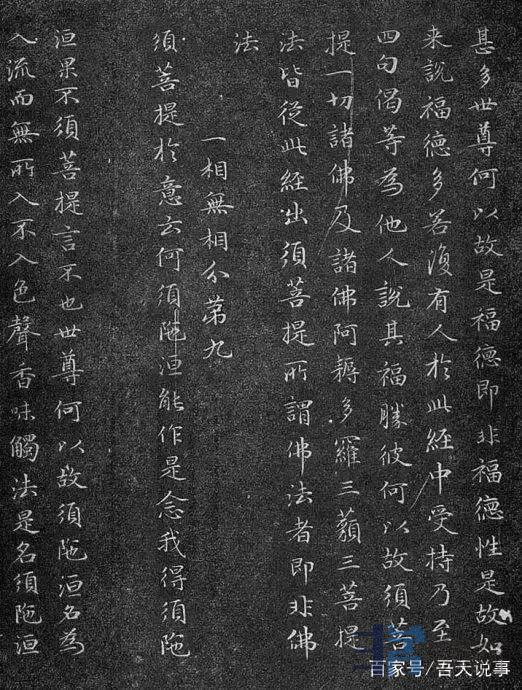 甚多世尊何以故是福德即非福德性是故如
来說福德多若復有人於此經中受持乃至
四句偈等為他人說其福勝彼何以故須菩
提一切諸佛及諸佛阿耨多羅三藐三菩提
法皆從此經出須菩提所謂佛法者即非佛
法
一相無相分第九
須菩提於意云何須陁洹能作是念我得須陁
洹果不須菩提言不也世尊何以故須陁洹名為
入流而無所入不入色聲香味觸法是名須陁洹
百家号/吾天说事